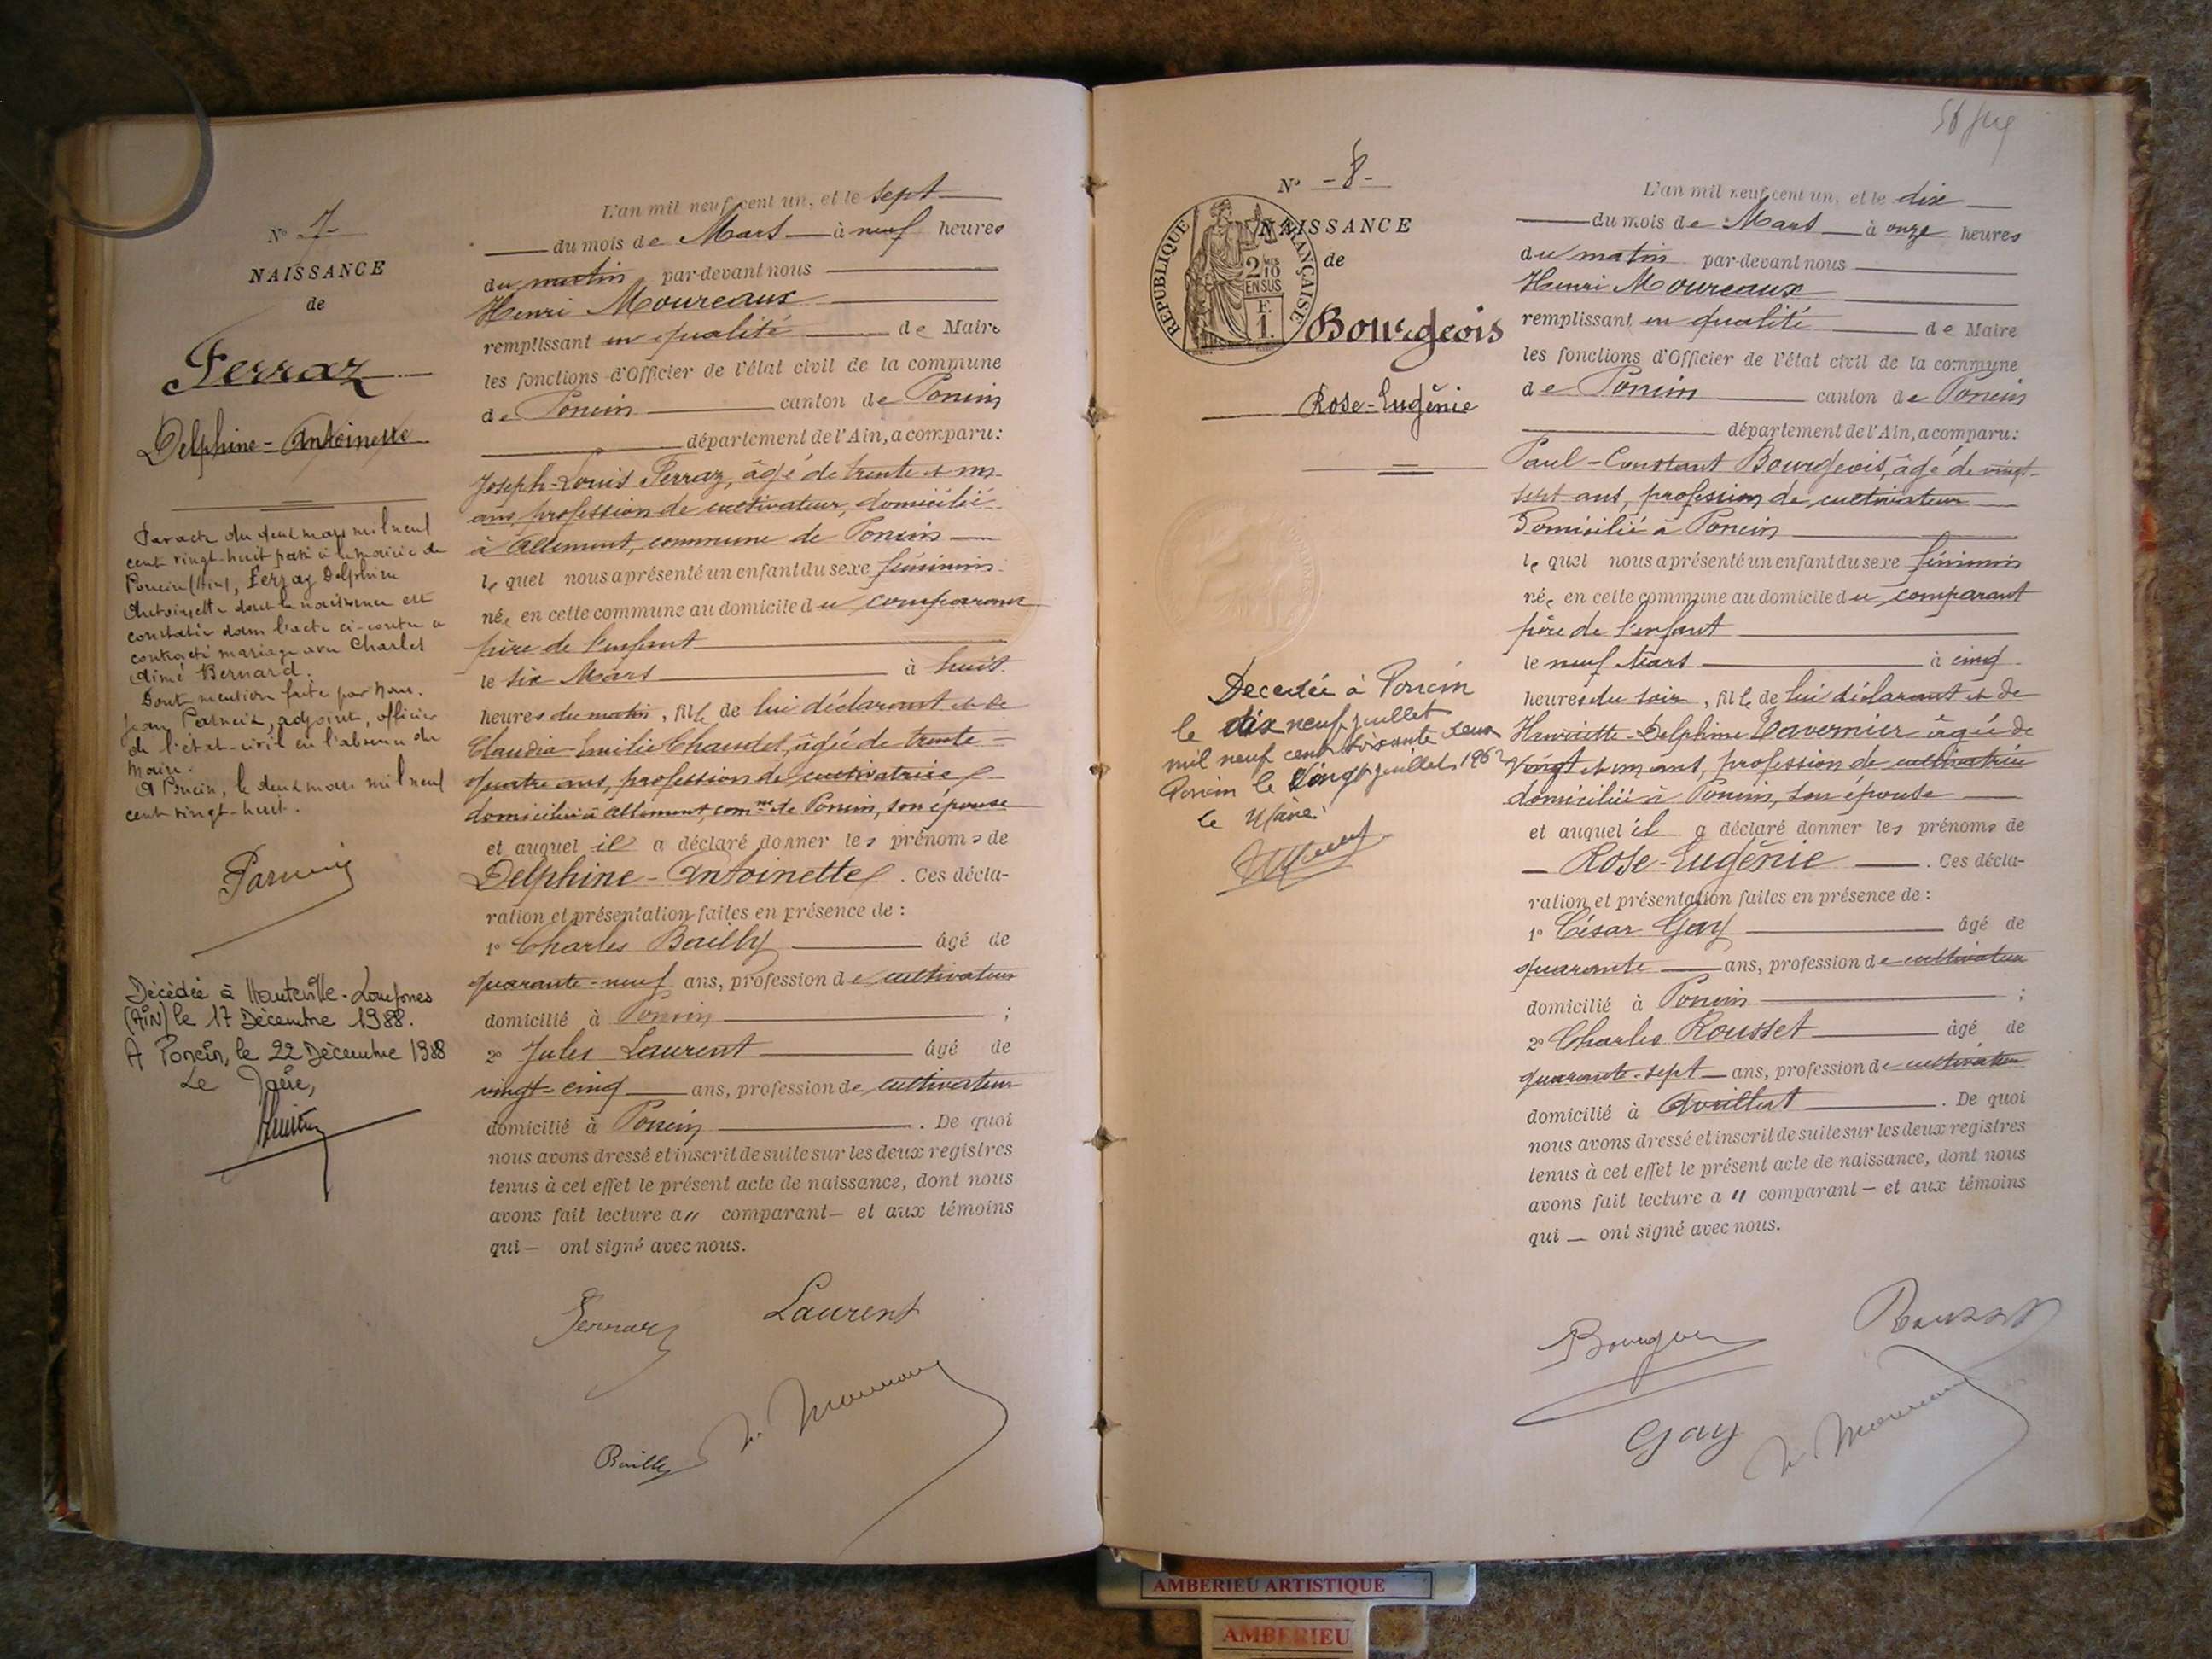 Nº 7
NAISSANCE
de
Ferraz
Delphine-Antoinette
Par acte du deux mars mil neuf
cent vingt-huit passé à la mairie de
Poncin (Ain), Ferraz Delphine
Antoinette dont la naissance est
constatée dans l'acte ci-contre a
contracté mariage avec Charles
Aimé Bernard.
Dont mention faite par nous.
Jean adjoint, officier
de l'état-civil en l'absence du
Maire.
A Poncin, le deux mars mil neuf
cent vingt-huit.
Décédée à Hauteville-Lompnes
(AIN) le 17 Décembre 1988.
A Poncin, le 22 Décembre 1988
Le Maire,
L'an mil neuf cent un, et le sept
du mois de Mars à neuf heures
du matin par-devant nous
Henri Moureaux
remplissant en qualité de Maire
les fonctions d'Officier de l'état civil de la commune
de Poncin canton de Poncin
département de l'Ain, a comparu:
Joseph-Louis Ferraz, âgé de trente et un
ans, profession de cultivateur, domicilié
à Allement, commune de Poncin
le quel nous a présenté un enfant du sexe féminin
née en cette commune au domicile du comparant
père de l'enfant
le six Mars à huit
heures du matin, fille de lui déclarant et de
Claudia-Emilie Chaudet, âgée de trente-
quatre ans, profession de cultivatrice
domiciliée à Allement, comne de Poncin, son épouse
et auquel il a déclaré donner les prénoms de
Delphine-Antoinette. Ces décla-
ration et présentation faites en présence de:
1º Charles Bailly âgé de
quarante-neuf ans, profession de cultivateur
domicilié à Poncin ;
2º Jules Laurent âgé de
vingt-cinq ans, profession de cultivateur
domicilié à Poncin. De quoi
nous avons dressé et inscrit de suite sur les deux registres
tenus à cet effet le présent acte de naissance, dont nous
avons fait lecture au comparant — et aux témoins
qui — ont signé avec nous.
Ferraz
Laurent
Bailly
H. Moureaux
Nº -8-
NAISSANCE
de
RÉPUBLIQUE FRANÇAISE
2 10MES
EN SUS
F.
1.
Bourgeois
Rose-Eugénie
Decedée à Poncin
le dix neuf juillet
mil neuf cent soixante deux
Poncin le vingt juillet 1962
le Maire
L'an mil neuf cent un, et le dix
du mois de Mars à onze heures
du matin par-devant nous
Henri Moureaux
remplissant en qualité de Maire
les fonctions d'Officier de l'état civil de la commune
de Poncin canton de Poncin
département de l'Ain, a comparu:
Paul-Constant Bourgeois, âgé de vingt-
sept ans, profession de cultivateur
domicilié à Poncin
le quel nous a présenté un enfant du sexe féminin
née en cette commune au domicile du comparant
père de l'enfant
le neuf Mars à cinq
heures du soir, fille de lui déclarant et de
Henriette-Delphine Tavernier âgée de
vingt et un ans, profession de cultivatrice
domiciliée à Poncin, son épouse
et auquel il a déclaré donner les prénoms de
Rose-Eugénie. Ces décla-
ration et présentation faites en présence de:
1º César Gay âgé de
quarante ans, profession de cultivateur
domicilié à Poncin ;
2º Charles Rousset âgé de
quarante-sept ans, profession de cultivateur
domicilié à Avrillat. De quoi
nous avons dressé et inscrit de suite sur les deux registres
tenus à cet effet le présent acte de naissance, dont nous
avons fait lecture au comparant — et aux témoins
qui — ont signé avec nous.
Bourgeois
Rousset
Gay
H. Moureaux
AMBERIEU ARTISTIQUE
AMBERIEU